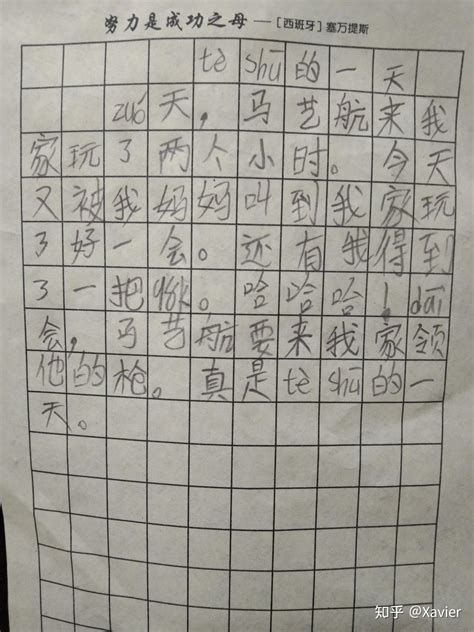 努力是成功之母——[西班牙]塞万提斯
tè shū的一天
zuó天，马艺航来我
家玩了两个小时。今天
又被我妈妈叫到我家玩
了好一会。还有我得到
了一把98k。哈哈哈！dāi
会，马艺航要来我家领
他的枪。真是tè shū的一
天。
知乎 @Xavier